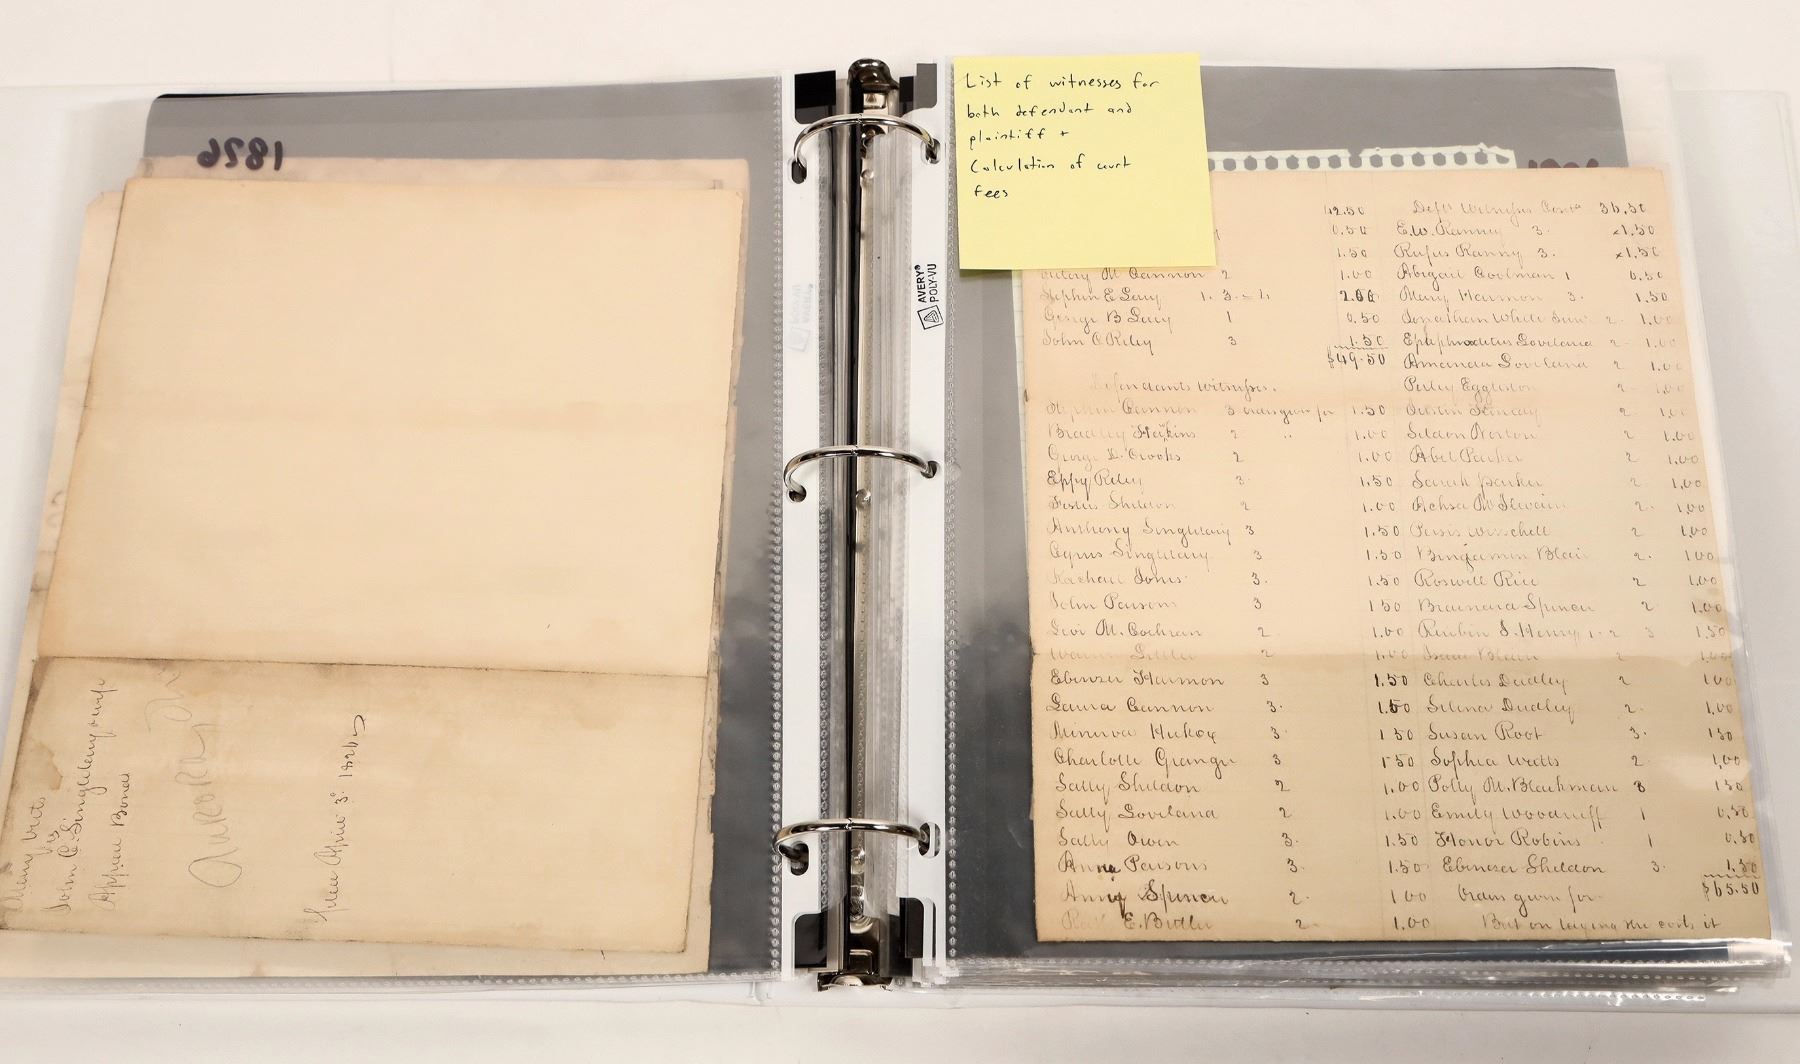 1826
Henry
vs
John C Singletary
Appeal Bond
AURORA
1826
AVERY®
POLY-VU
List of witnesses for
both defendant and
plaintiff +
Calculation of court
fees
42.50
0.50
1.50
M Cannon 2 1.00
Stephen E Gary 1. 3. = 4 2.00
George B Gary 1 0.50
John C Riley 3 1.50
$49.50
Defendants witnesses.
Stephen Cannon 3 orders given for 1.50
Bradley Hoskins 2 " 1.00
George L. Crooks 2 1.00
Eppy Riley 3 1.50
Festus Sheldon 2 1.00
Anthony Singletary 3 1.50
Cyrus Singletary 3 1.50
Rachael Jones 3. 1.50
John Parsons 3 1 50
Levi M. Cochran 2. 1.00
Warren Little 2 1.00
Ebenezer Harmon 3 1.50
Laura Cannon 3. 1.50
Minerva Hickox 3. 1 50
Charlotte Granger 3 1 50
Sally Sheldon 2 1.00
Sally Loveland 2 1.00
Sally Owen 3. 1.50
Anna Parsons 3. 1.50
Spencer 2. 1 00
E. Butler 2. 1.00
Deft Witnesses 36.50
E.W. Ranney 3. x1.50
Rufus Ranny 3. x1.50
Abigail Coolman 1 0.50
Mary Harmon 3. 1.50
Jonathan White 2. 1.00
Epaphroditus Loveland 2 1.00
Amanda Loveland 2 1.00
Perley Eggleston 2 1.00
2 1.00
Seldon Norton 2 1.00
Abel Parker 2 1.00
Sarah Parker 2 1.00
Achsa 2. 1.00
Persis Winchell 2 1.00
Bingamin Blair 2. 1 00
Roswell Rice 2 1.00
Brainard Spencer 2 1.00
Reubin S. Henry 1-2 3 1.50
Isaac Blair 2 1.00
Charles Dudley 2 1 00
Selina Dudley 2. 1.00
Susan Root 3. 1 50
Sophia Watts 2. 1.00
Polly M. Blackman 3 1 50
Emily Woodruff 1 0.50
Honor Robins 1 0.50
Ebenezer Sheldon 3. 1.50
Orders given for $65.50
But on taxing the costs it